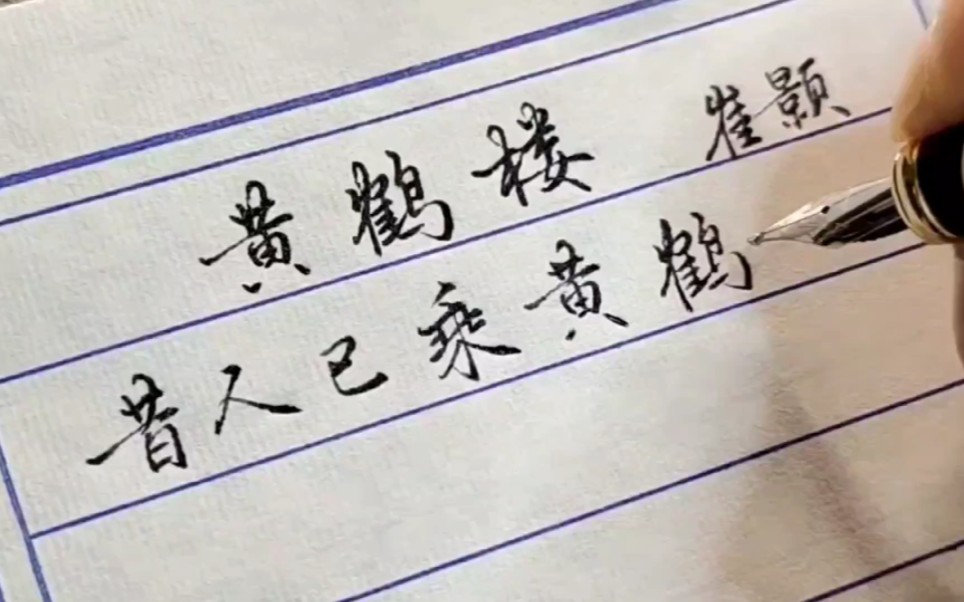 黄鹤楼 崔颢
昔人已乘黄鹤